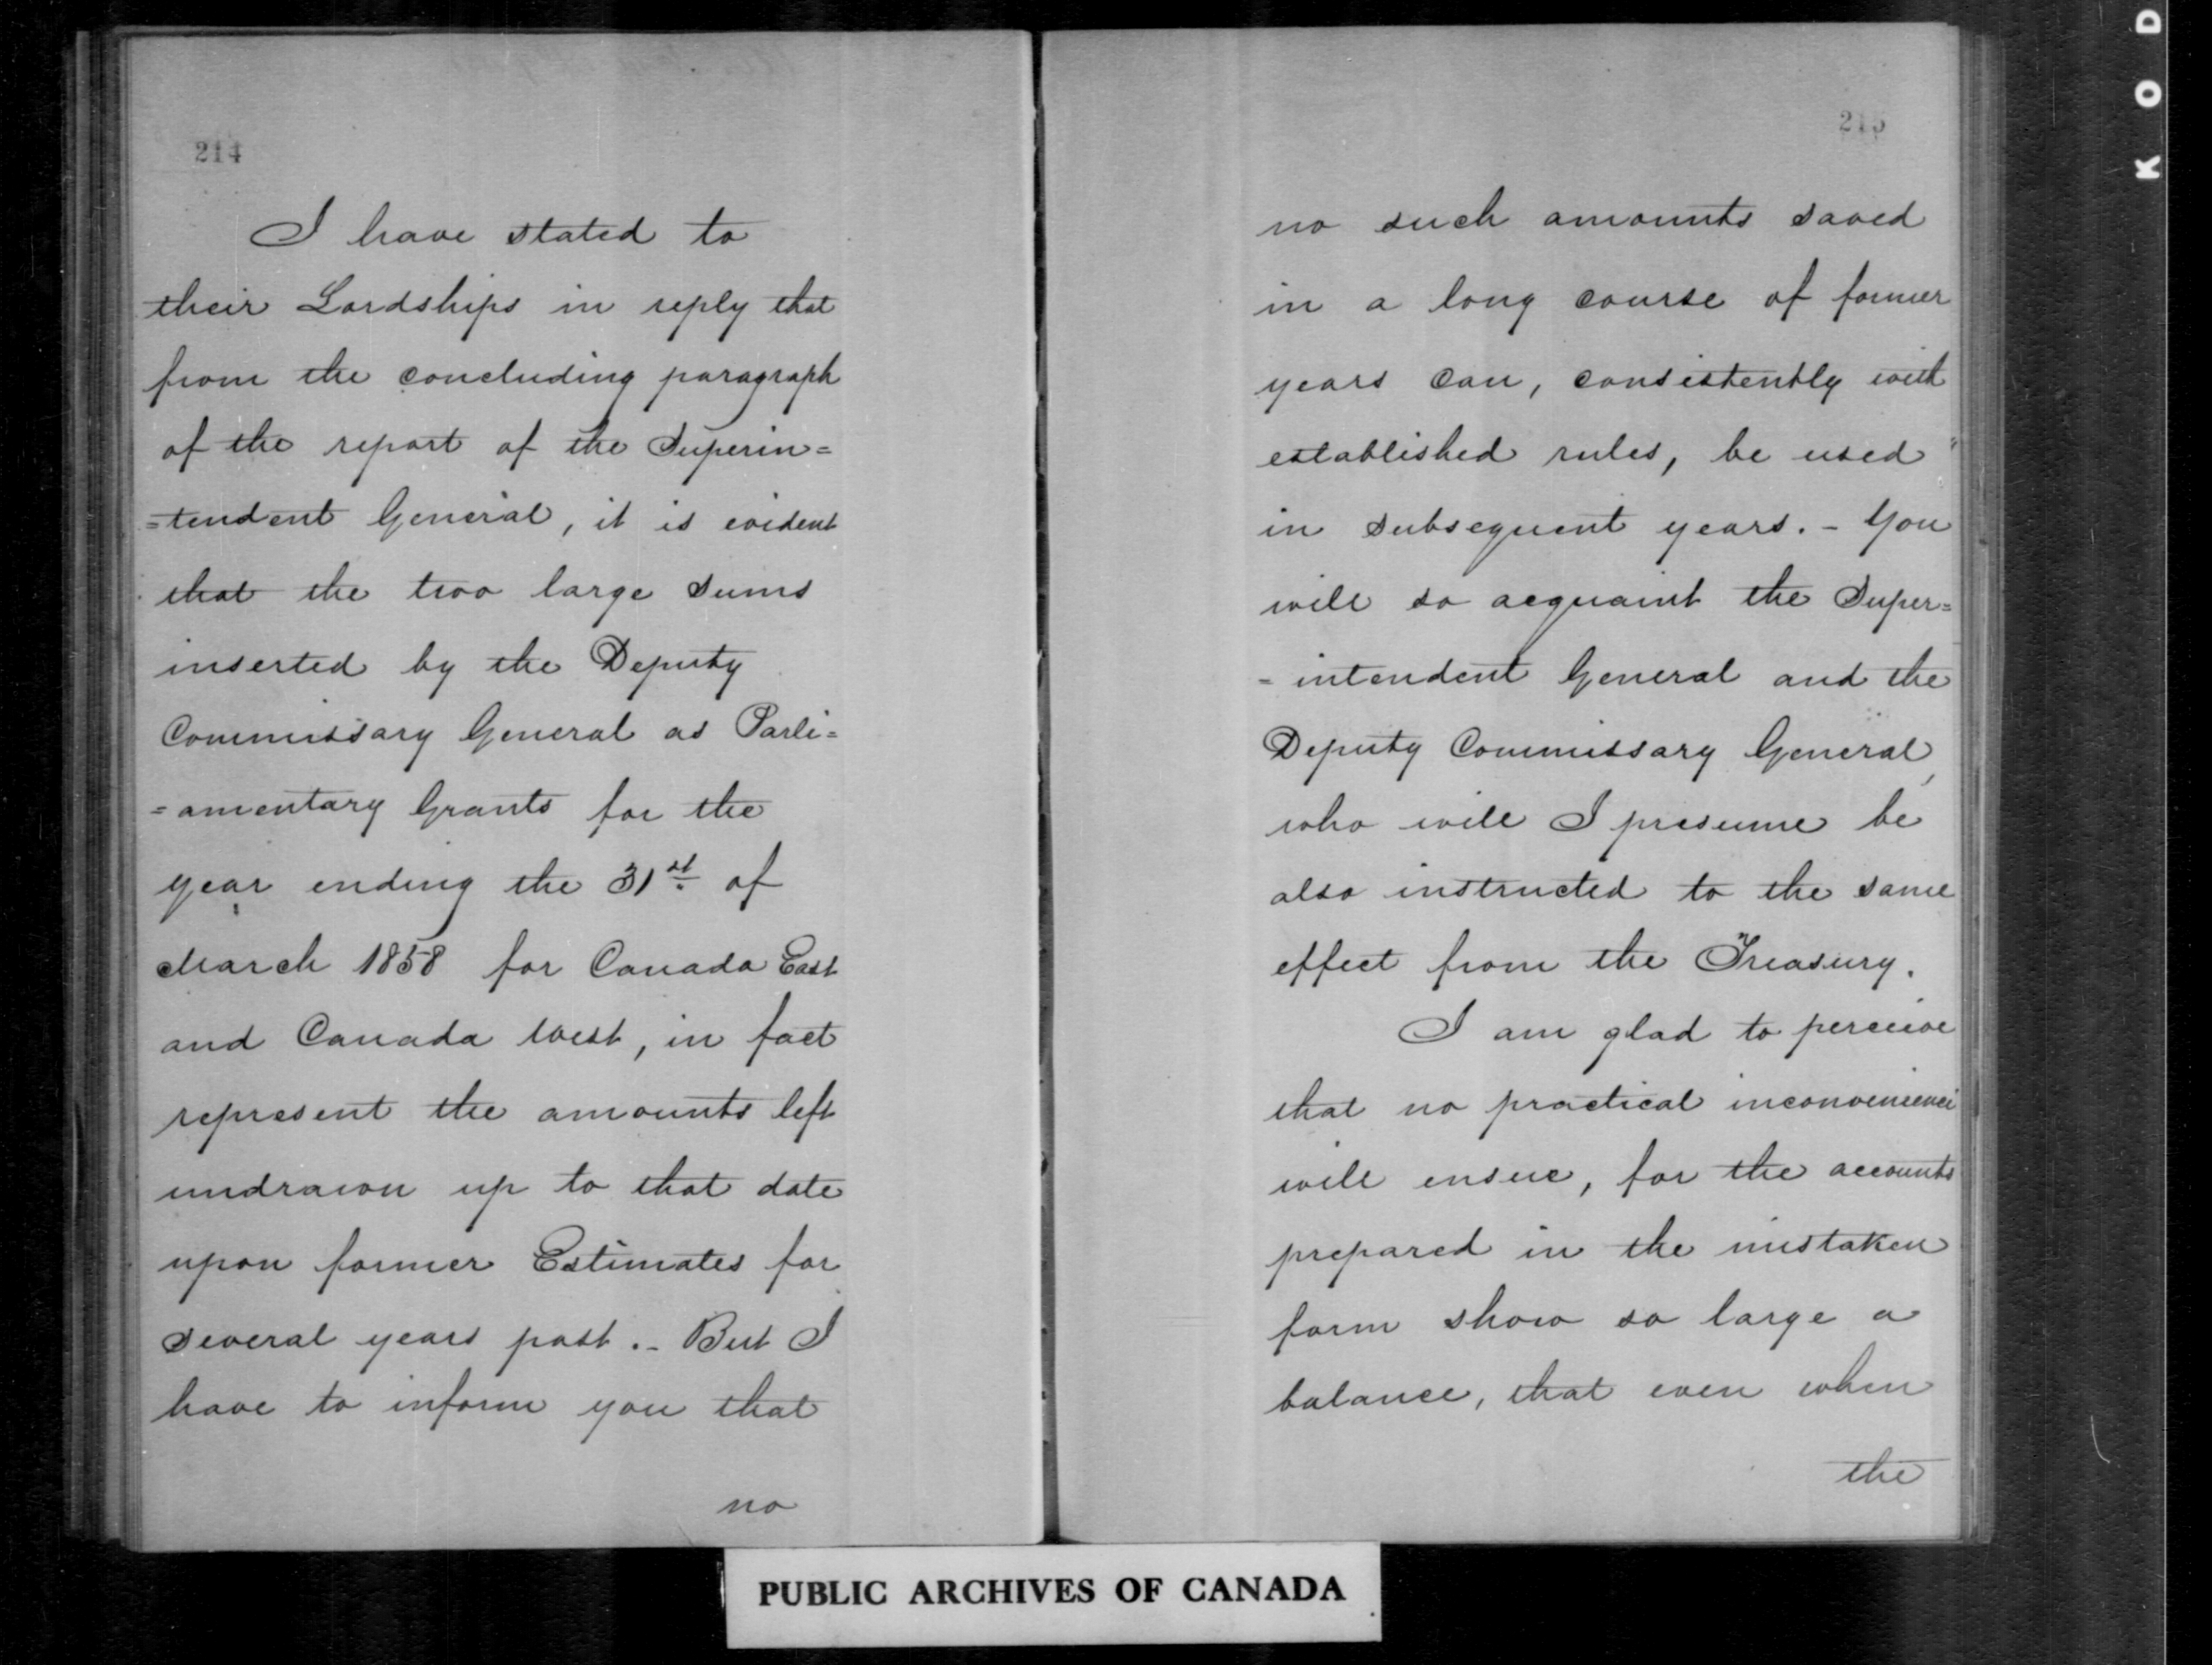 214
I have stated to
their Lordships in reply that
from the concluding paragraph
of the report of the Superin=
=tendent General, it is evident
that the two large sums
inserted by the Deputy
Commissary General as Parli=
=amentary Grants for the
year ending the 31st of
March 1858 for Canada East
and Canada West, in fact
represent the amounts left
undrawn up to that date
upon former Estimates for
several years past. - But I
have to inform you that
no
215
no such amounts saved
in a long course of former
years can, consistently with
established rules, be used
in subsequent years. - You
will so acquaint the Super=
=intendent General and the
Deputy Commissary General,
who will I presume be
also instructed to the same
effect from the Treasury.
I am glad to perceive
that no practical inconvenience
will ensue, for the accounts
prepared in the mistaken
form show so large a
balance, that even when
the
PUBLIC ARCHIVES OF CANADA
K O D